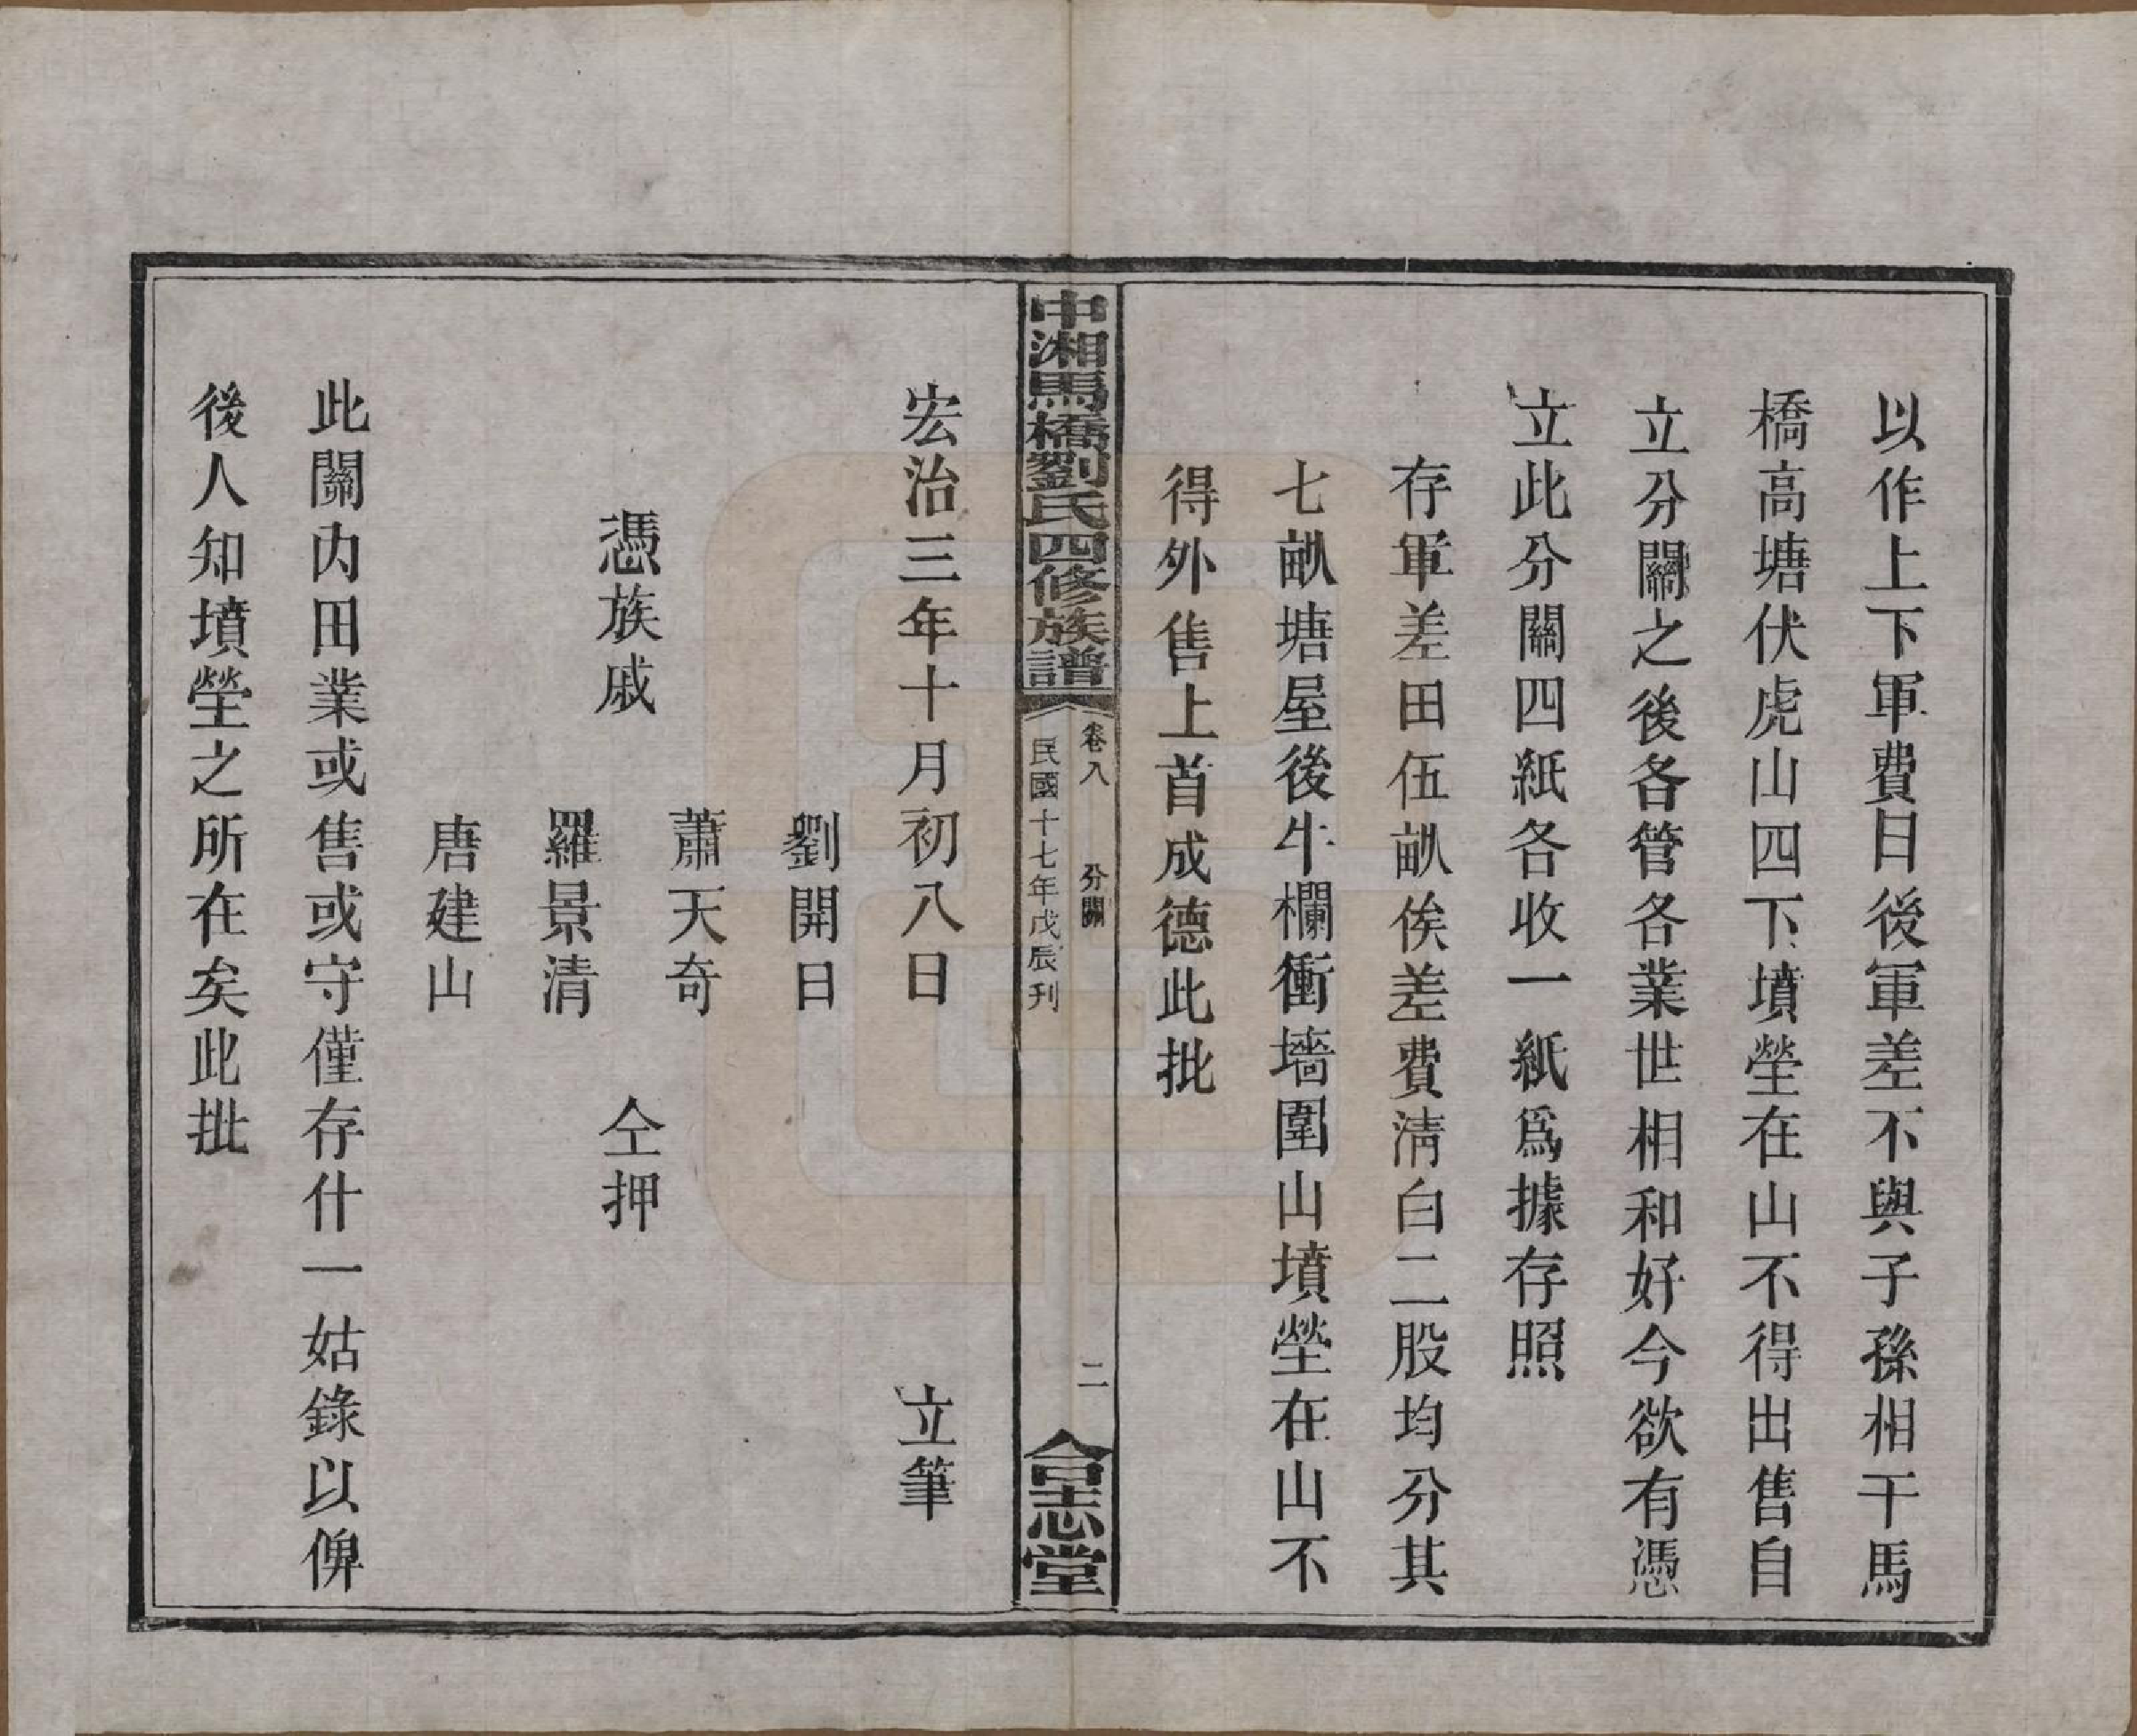 以作上下軍費日後軍差不與子孫相干馬
橋高塘伏虎山四下墳塋在山不得出售自
立分關之後各管各業世相和好今欲有憑
立此分關四紙各收一紙爲據存照
存軍差田伍畝俟差費淸白二股均分其
七畝塘屋後牛欄衝墻圍山墳塋在山不
得外售上首成德此批
中湘馬橋劉氏四修族譜
卷八　分關　二
民國十七年戊辰刊
合志堂
宏治三年十月初八日　立筆
劉開日
蕭天奇
憑族戚　仝押
羅景清
唐建山
此關內田業或售或守僅存什一姑錄以俾
後人知墳塋之所在矣此批